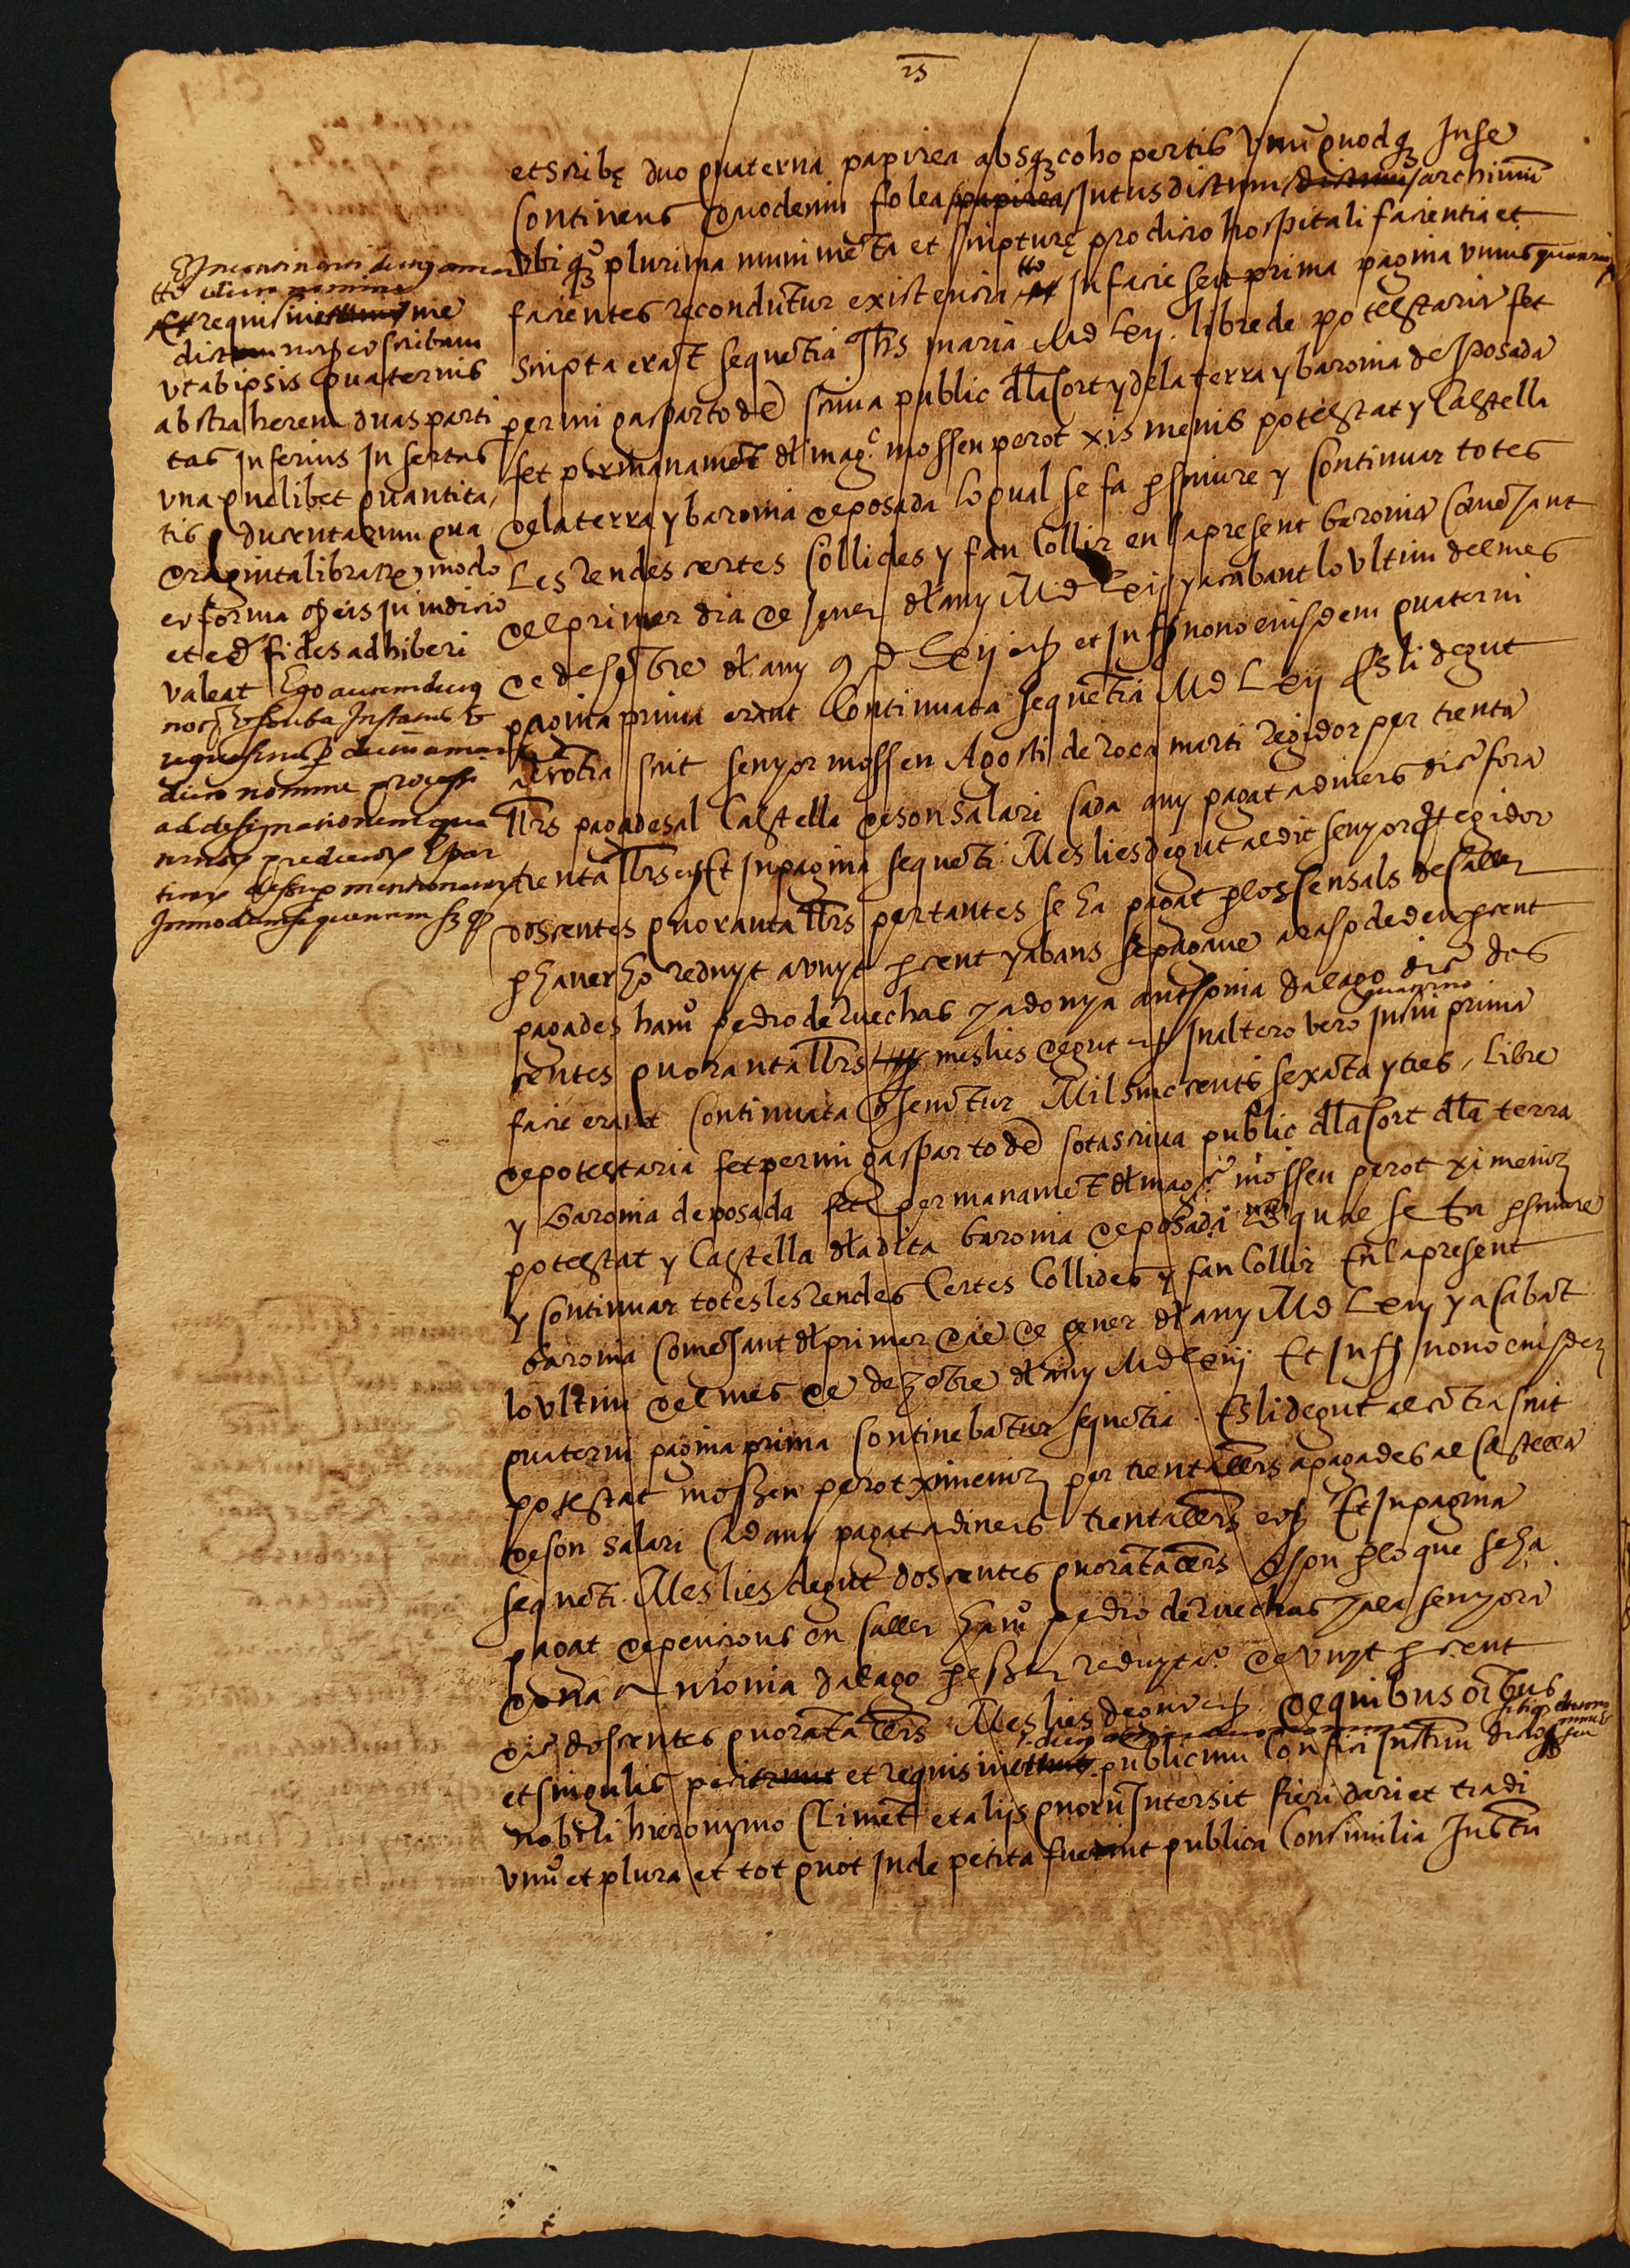 25
et scribę duo quaterna papirea absq₃ cohopertis Vnũ quodq₃ In se
Continens duodenim folea papirea Intus dictum dictum archiuiũ
Vbi plurima munimẽta et scripturę pro dicto hospitali facientia et
facientes recondũtur existencia tto In facie seu prima pagina vnius quaterni
Scripta erãt sequẽtia Jhs maria Md Lxij. libre de potestaria fet
per mi gaspar tode scriua public dłla Cort y de la terra y baronia de Posada
fet per manamẽt dł mag.c mossen perot xismenis potestat y Castella
de la terra y baronia de posada lo qual se fa p scriure y Continuar totes
Les rendes certes Collides y fan Collir en la present baronia Comẽsant
del primer dia de Jener dł any Md Lxij y acabant lo vltim del mes
de desẽbre dł any M d Lxij et In nono eiusdem quaterni
pagina prima erant Continuata sequẽtia Md Lxij Es li degut
a cõtra scrit senyor mossen Agosti de roca marti regidor per trenta
llrs pagades al Castella de son salari cada any pagat a diners dic fora
trenta llrs Et In pagina sequẽti. Mes lies degut al dit senyor regidor
doscentes quoranta llrs per tantes se ha pagat p los sensals de Caller
p haver ho reduyt a vuyt p cent y abans se pagaue a raho de deu p cent
pagades ham̃ pedro de ruechas y a donya anthonia dalago dic dos
centes quoranta llrs mes lies degut In altero vero quaterno In sui prima
facie erant Continuata q̃ seruẽtur Mil sinc cents sexãta y tres, libre
de potestaria fet per mi gaspar tode sotascriua public dłla Cort dłla terra
y baronia de posada fet per manamẽt dł mag.c mossen perot ximeniz
potestat y Castella dła dita baronia de posada lo qual se fa p scriure
y Continuar totes les rendes Certes Collides y fan Collir En la present
baronia Comẽsant dł primer die de gener dł any Md Lxiij y acabãt
lo vltim del mes de dezẽbre dł any Md Lxiij Et In nono eiusdez
quaterni pagina prima Continebãtur sequẽtia. Es li degut al cõtra scrit
potestat mossen perot ximeniz per trenta llrs a pagades al Castella
de son salari Cad any pagat a diners trenta llrs Et In pagina
sequẽti. Mes lies degut doscentes quorãta llrs son p lo que se ha
pagat de pencions en Caller ham̃ pedro de ruechas y a la senyora
dona Antonia dalago p esser reduyta de vuyt p cent
dic doscentes quorãta llrs Mes lies degut de quibus oĩbus
et singulis et requisiui publicum Confici Instm̃ dicto
nobili hieronymo Climẽt et alijs quorũ Intersit fieri dari et tradi
vnũ et plura et tot quot Inde petita fuerint publica Consimilia Instra
tto dicto nomine
Et requisiuit me
dictum not. et scribam
vt ab ipsis quaternis
abstraherem duas parti
tas Inferius Insertas
vna quelibet quantita
tis ducentarum qua
draginta librarum modo
et forma q̃ eis In iudicio
et ed fides adhiberi
valeat Ego autem dictus
not. et scriba Instatus et
requisitus
dicto nomine processi
ad designationem qua
ternorum predictorum et par
tium desup mentionatarum
In modum sequentem